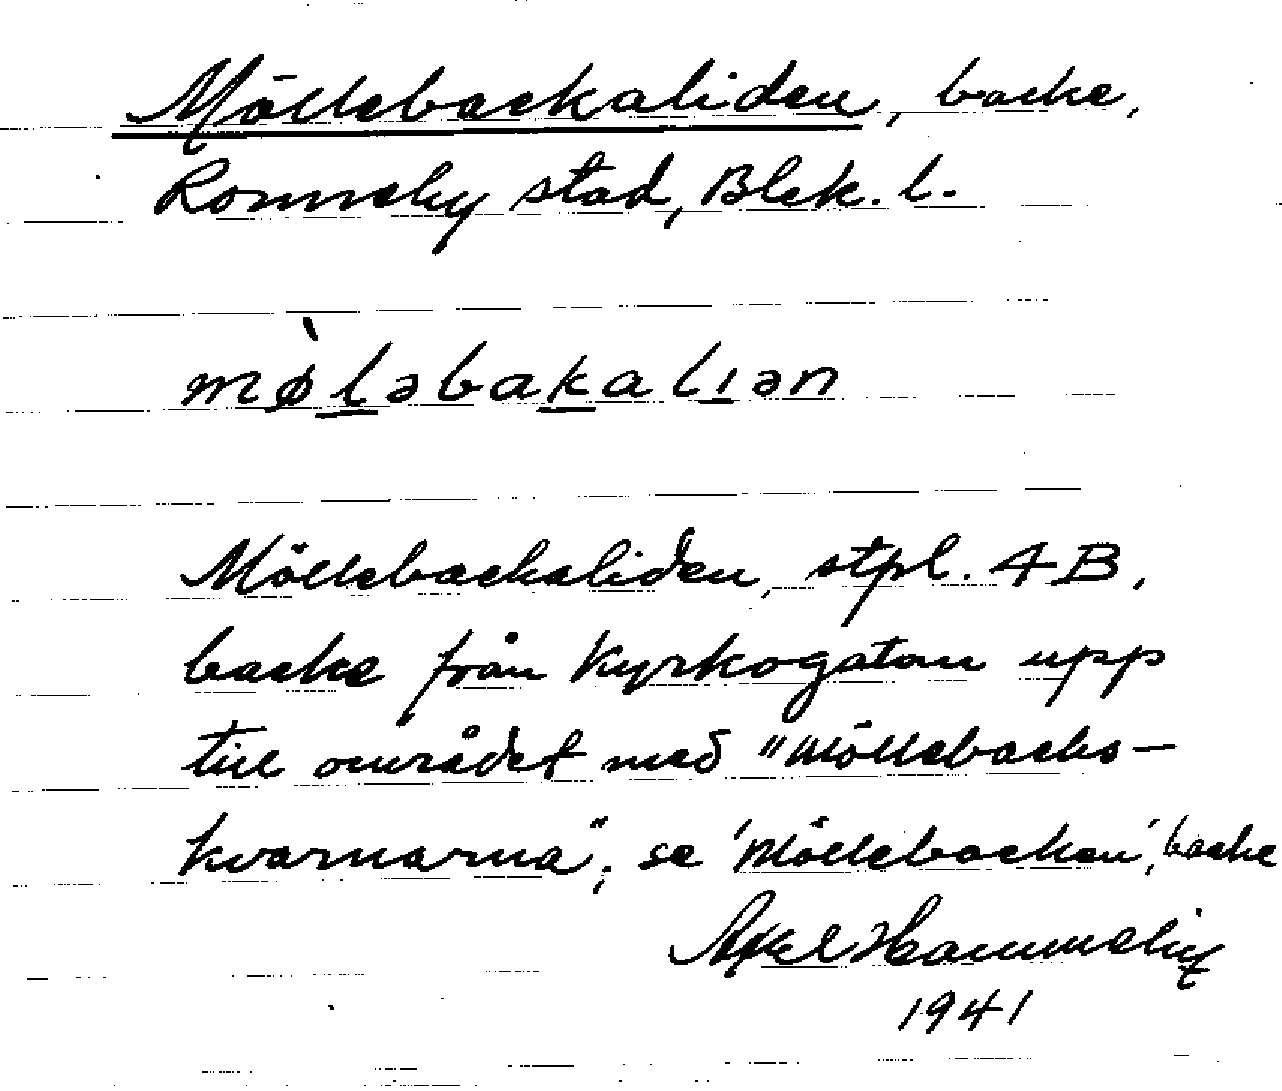 Möllebackaliden, backe,
Ronneby stad, Blek. l.
mø̀ləbakalıən
Möllebackaliden, stpl. 4B,
backe från Kyrkogatan upp
till området med "Möllebacks-
kvarnarna", se 'Möllebacken', backe
Axel
1941